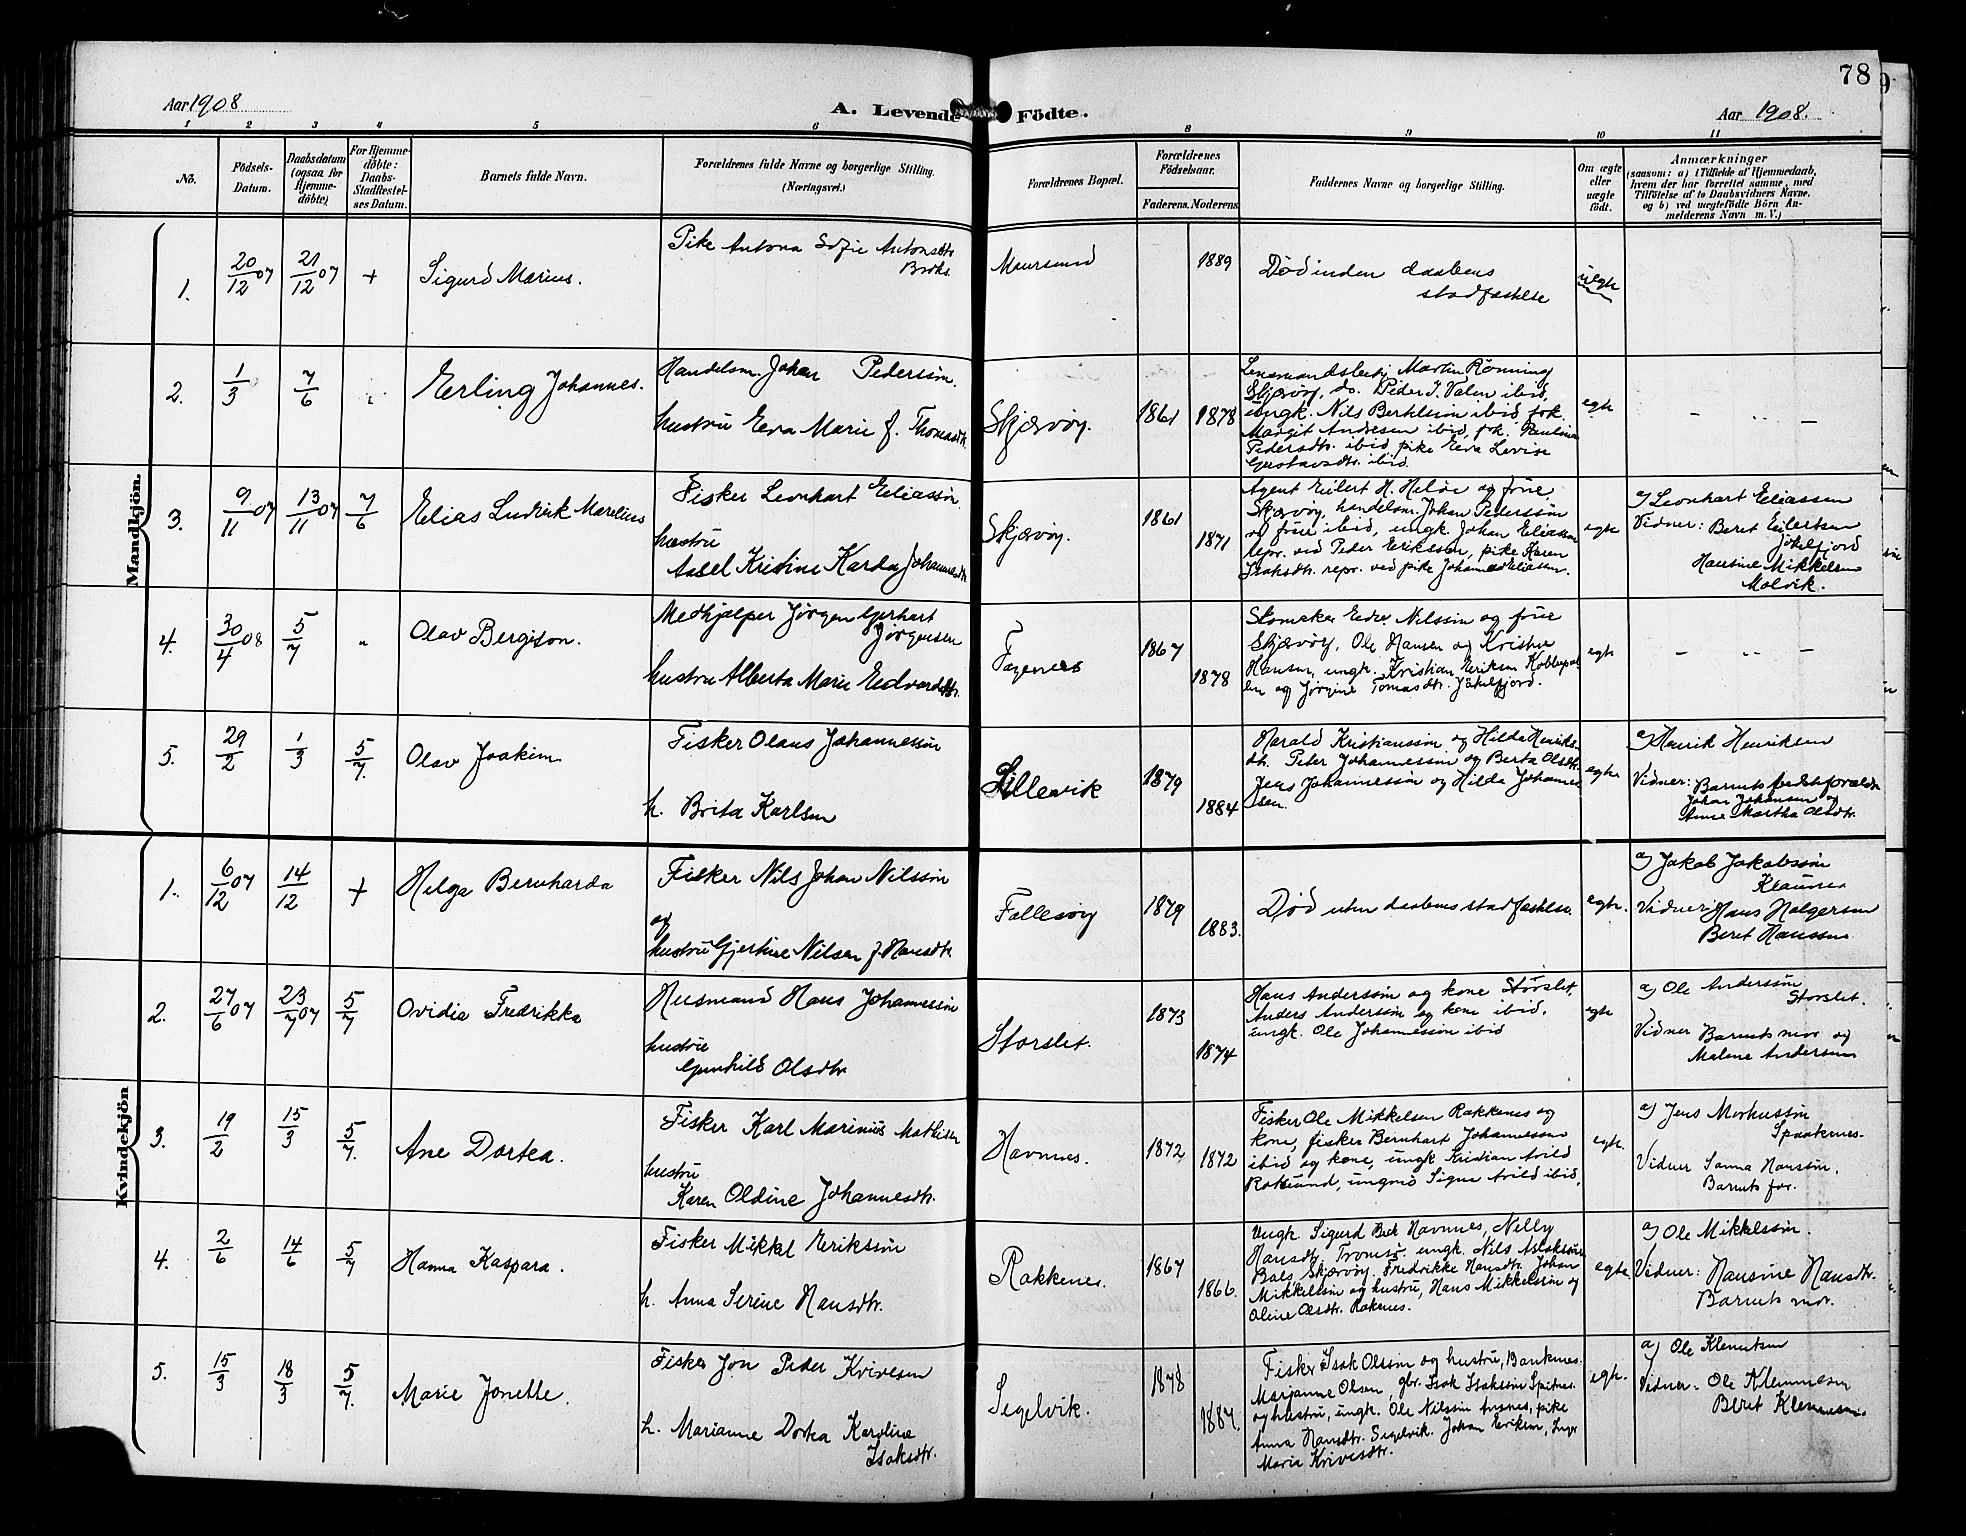 78
Aar 1908
A. Levende Födte.
Aar 1908.
1 2 3 4 5 6 8 9 10 11
No.
Födsels-
Datum.
Daabsdatum
(ogsaa for
Hjemme-
döbte)
For Hjemme-
döbte:
Daabs-
Stadfæstel-
ses Datum.
Barnets fulde Navn.
Forældrenes fulde Navne og borgerlige Stilling.
(Næringsvei.)
Forældrenes Bopæl.
Forældrenes
Födselsaar.
Faderens. Moderens.
Faddernes Navne og borgerlige Stilling.
Om ægte
eller
uægte
födt.
Anmærkninger
(saasom: a) i Tilfælde af Hjemmedaab,
hvem der har forrettet samme, med
Tilföielse af to Daabsvidners Navne,
og b) ved uægtefödte Börn An-
melderens Navn m. V.)
Mandkjön.
1.
20/12 07
21/12 07
+
Sigurd Marius.
Pike Antona Sofie Antonsdtr
Maursund
1889
Død inden daabens
stadfæstelse
uegte
2.
1/3
7/6
Erling Johannes.
Handelsm. Johan Pederssøn.
hustru Eva Marie f. Thomasdtr.
Skjærvøy.
1861
1878
Lensmandsbetj Martin Rønning
Skjærvøy, do. Peder J. Valen ibid,
ungk. Nils Bertelssøn ibid, frk.
Margit Andresen ibid, frk. Paulina
Pedersdtr. ibid, pike Eva Lovise
Gustavsdtr. ibid.
egte
3.
9/11 07
13/11 07
7/6
Elias Ludvik Marelius
Fisker Leonhart Eliassøn
hustru
Aasel Kristine Karda Johannesdtr
Skjærvøy.
1861
1871
Agent Eilert H. Heløe og frue,
Skjærvøy, handelsm. Johan Pederssøn
og frue, ibid, ungk. Johan Eliassøn
repr. ved Peder Erikssøn, pike Karen
Isaksdtr. repr. ved pike Johanna Eliassen.
egte
a) Leonhart Eliassen
Vidner: Beret Eilertsen
Jøkelfjord
Hansine Mikkelsen
Molvik.
4.
30/4 08
5/7
"
Olav Bergiton.
Medhjælper Jørgen Gerhart
Jørgensen
hustru Alberta Marie Edvardsdtr.
Tagenes
1867
1878
Skomaker Nilssøn og frue
Skjærvøy, Ole Hansen og Kristine
Hansen, ungk. Kristian Eriksen
og Jørgine Tomasdtr. Jøkelfjord.
egte
5.
29/2
1/3
5/7.
Olav Joakim.
Fisker Olaus Johannessøn
h. Brita Karlsen
Lillevik
1879
1884
Harald Kristianssøn og Hilda Henriks-
dtr. Peter Johannessøn og Berta Olsdtr.
Jens Johannessøn og Hilda Johannes
sen.
egte
a) Henrik Henriksen
Vidner: Barnets bedsteforældre
Johan Johansen og
Anne Martha Olsdtr.
Kvindekjön
1.
6/12 07
14/12
+
Helga Bernharda
Fisker Nils Johan Nilssøn
og
hustru Gjertine Nilsen f. Hansdtr.
Follesøy
1879
1883.
Død uten daabens stadfæstelse.
egte.
a) Jakob Jakobssøn
Vidner: Hans Holgersen
Beret Hanssen
2.
27/6 07
23/7 07
5/7
Ovidia Fredrikke
Husmand Hans Johannessøn
hustru
Gunhild Olsdtr
Storslet.
1873
1874
Hans Anderssøn og kone Storslet,
Anders Anderssøn og kone ibid,
ungk. Ole Johannessøn ibid
egte
a) Ole Anderssøn
Storslet.
Vidner Barnets mor og
Malene Andersen
3.
19/2
15/3
5/7.
Ane Dortea.
Fisker Karl Marinius Mathisen
hustru
Karen Oldine Johannesdtr.
Havnnes.
1872
1872
Fisker Ole Mikkelsen Rakkenes og
kone, fisker Bernhart Johannessen
ibid og kone, ungk Kristian Arild
Roksund, ungmø Signe Arild ibid,
egte.
a) Jens Morhussøn
Spaaknes.
Vidner Sanna Hanssøn.
Barnets far.
4.
2/6
14/6
5/7
Hanna Kaspara.
Fisker Mikkel Erikssøn
h. Anna Serine Hansdtr.
Rakkenes.
1867
1866.
Ungk. Sigurd Beck Havnnes, Nelly
Hansdtr. Tromsø, ungk. Nils Aslakssøn
Bals Skjærvøy. Fredrikke Hansdtr. Johan
Mikkelsøn og hustru, Hans Mikkelsøn og
Oline Olsdtr. Rakenes.
egte
a) Ole Mikkelssøn.
Vidner: Hansine Hansdtr.
Barnets mor.
5.
15/3
18/3
5/7.
Marie Jonette.
Fisker Jon Peder Krivesen
h. Marianne Dortea Karoline
Isaksdtr.
Segelvik.
1878
1887.
Fisker Isak Olssøn og hustru, Bankenes.
Marjanne Olsen, gbr. Isak Isakssøn Spitnes
og hustru, ungk. Ole Nilssøn Ansnes, pike
Anna Hansdtr. Segelvik. Johan Eriksen, Inger
Maria Krivesdtr.
egte.
a) Ole Klemetsen
Vidner: Ole Klemmesen
Beret Klemesen.